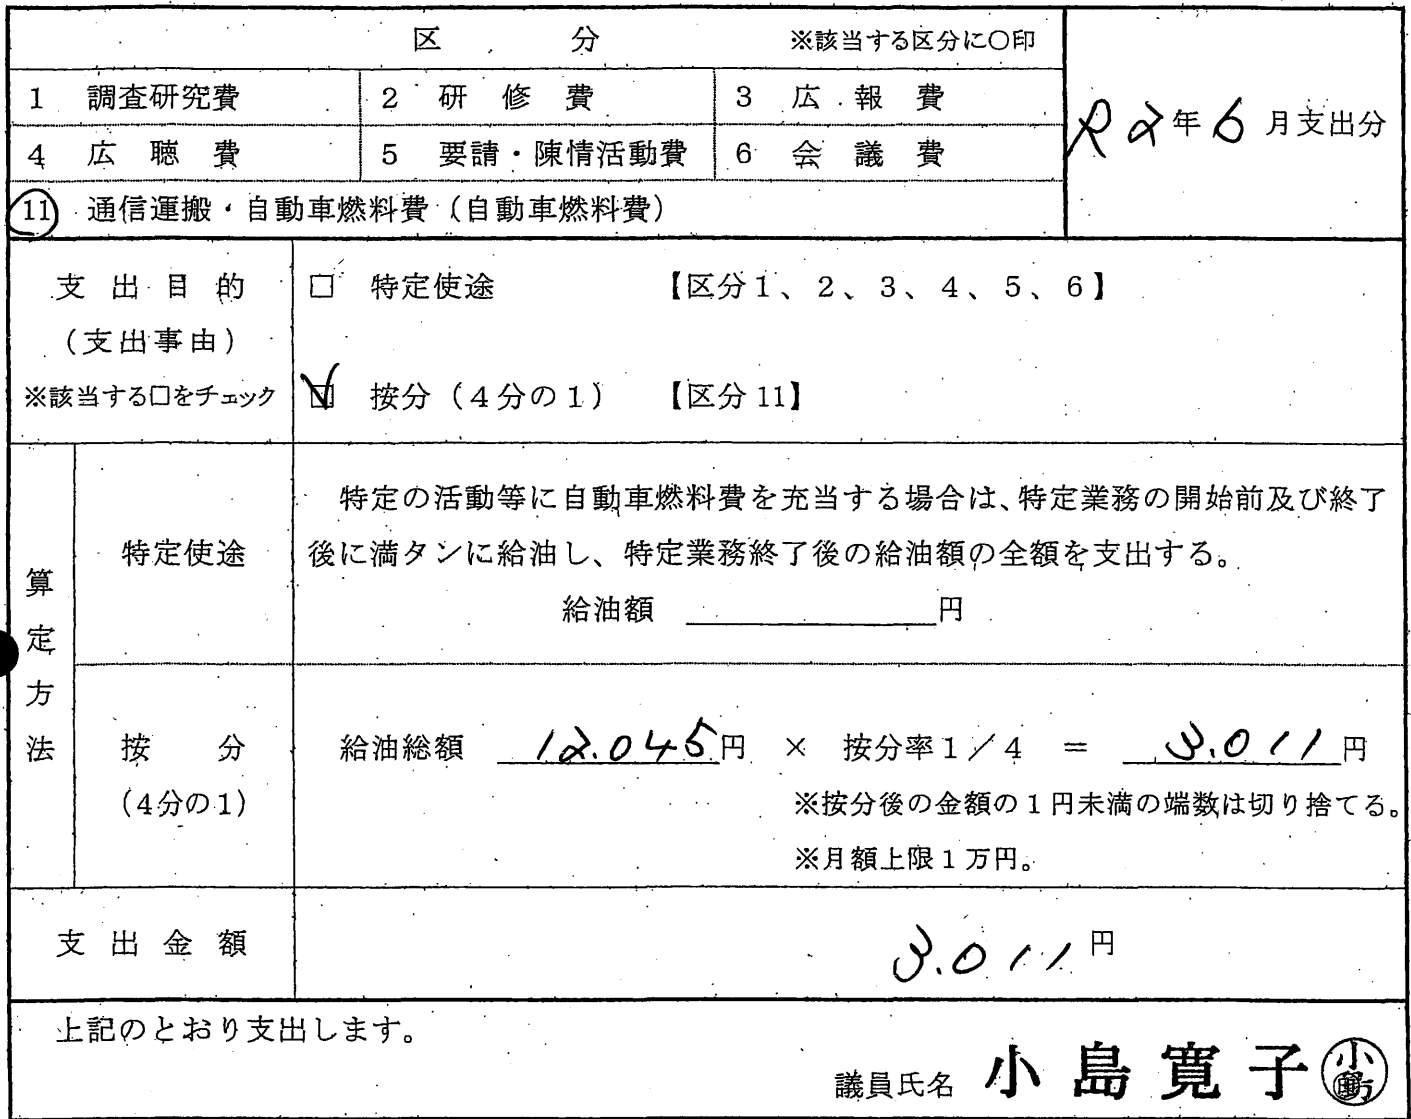 区 分 ※該当する区分に〇印
1 調査研究費 2 研修費 3 広報費
R2年6月支出分
4 広聴費 5 要請・陳情活動費 6 会議費
11 通信運搬・自動車燃料費（自動車燃料費）
支出目的
（支出事由）
※該当する□をチェック
□ 特定使途 【区分1、2、3、4、5、6】
☑ 按分（4分の1） 【区分11】
算定方法
特定使途
特定の活動等に自動車燃料費を充当する場合は、特定業務の開始前及び終了
後に満タンに給油し、特定業務終了後の給油額の全額を支出する。
給油額 円
按分
（4分の1）
給油総額 12.045円 × 按分率1／4 ＝ 3.011円
※按分後の金額の1円未満の端数は切り捨てる。
※月額上限1万円。
支出金額 3.011円
上記のとおり支出します。
議員氏名 小島寛子 小島